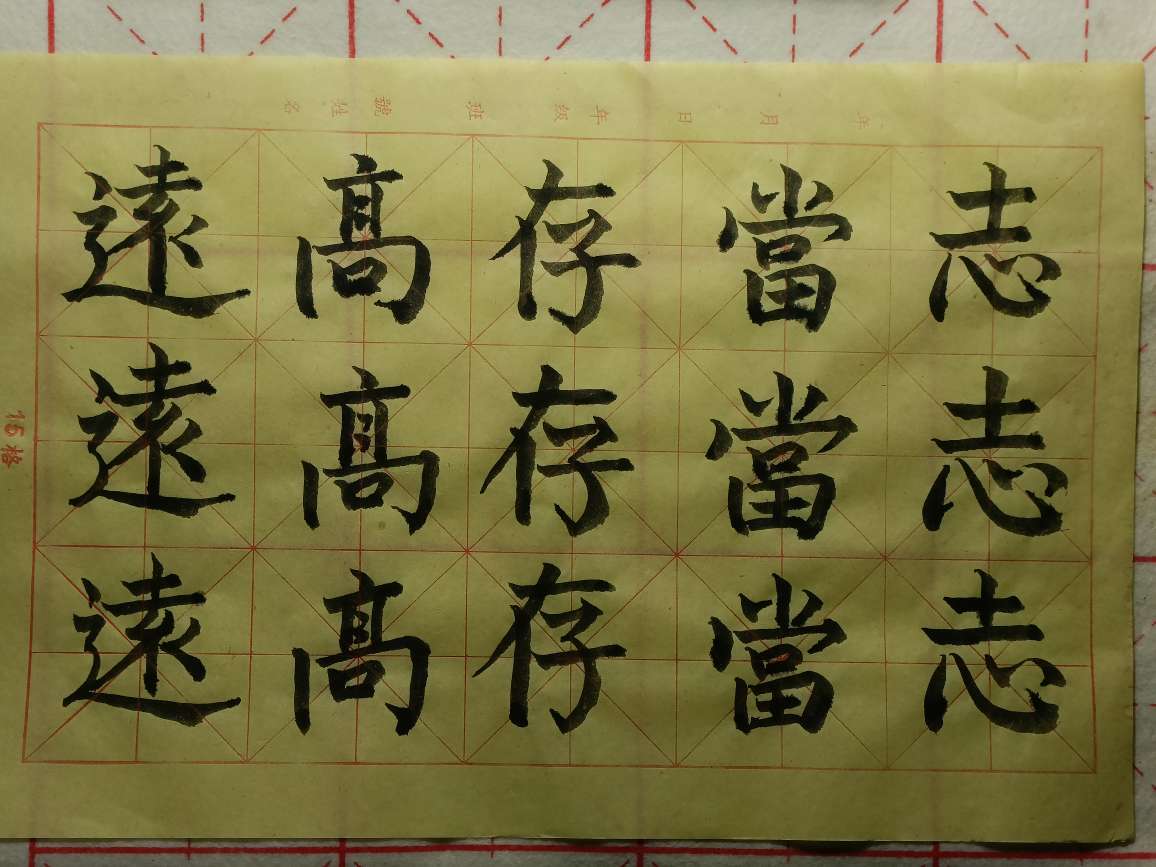 年 月 日 年級 班 號 姓名
志當存高遠
志當存高遠
志當存高遠
15格